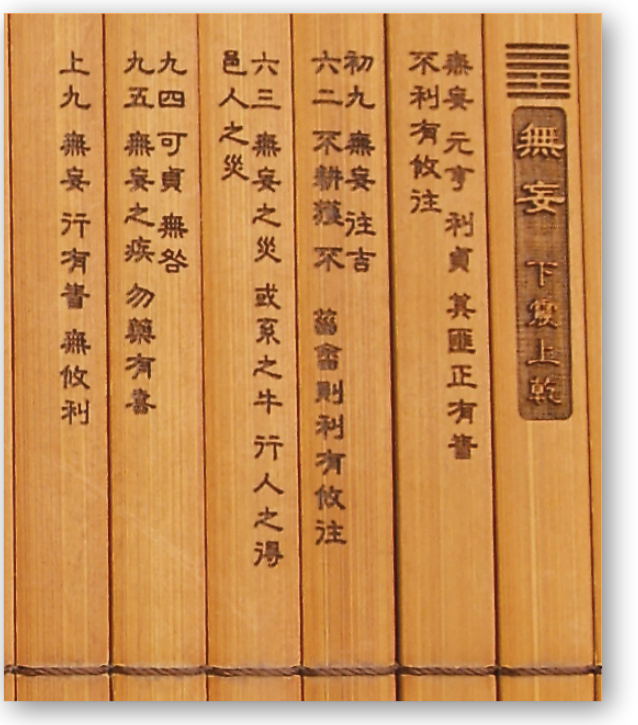 無妄 下震上乾
無妄 元亨 利貞 其匪正有眚
不利有攸往
初九 無妄 往吉
六二 不耕獲 不 菑畬則利有攸往
六三 無妄之災 或系之牛 行人之得
邑人之災
九四 可貞 無咎
九五 無妄之疾 勿藥有喜
上九 無妄 行有眚 無攸利